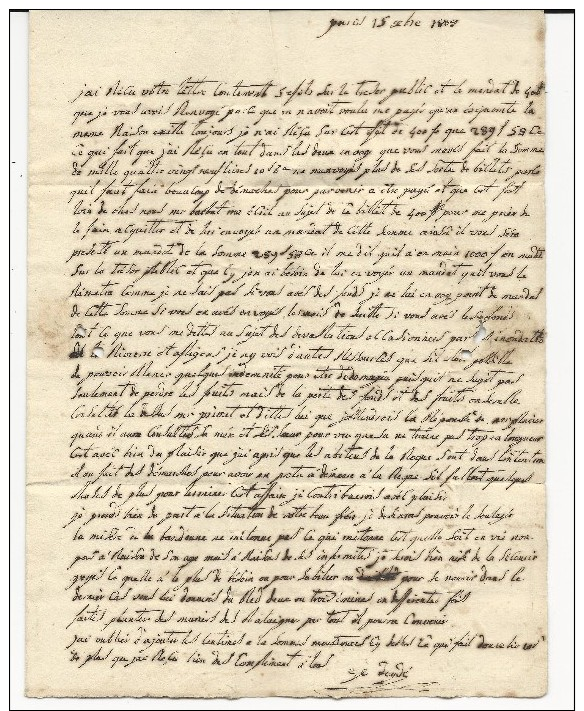 paris 15 xbre 1808
j'ai Reçu votre lettre Contenant 5 effets sur le tresor public et le mandat de 400ff
que je vous avois Renvoyé parce que on n'avoit voulu me payer qu'un cinquante la
meme Raison existe toujours je n'ai Reçu sur cest effet de 400ff que 289f 58 Ce
Ce qui fait que j'ai Reçu en tout dans les deux envoys que vous m'avés fait la somme
de mille quattre vingt neuf livres 10 s 8 ne m'envoyés plus de Ses Sorte de billets parce
quil faut faire beaucoup de démarches pour parvenir a etre payé et que Cest fort
loin de chés nous mr m'a écrit au sujet de Ce billet de 400ff pour me prier de
le faire aCquitter et de lui envoyer un mandat de Cette somme ainsi il vous Sera
presenté un mandat de la somme 289f 58 Ce il me dit quil a en main 1000f en mandat
Sur le tresor public et que Cy j'en ai besoin de lui envoyer un mandat quil vous le
Remettra Comme je ne sais pas si vous avés des fonds je ne lui envoye point de mandat
de Cette somme si vous en avés envoyés le moi de suitte si vous avés les fonds
tout Ce que vous me dittes au sujet des devastations occasionnés par l'inondation
de la Riviere m'afligent je ny vois d'autres Ressources que
de pouvoir obtenir quelque indemnité pour etre dedomagés puisquil ne s'agit pas
Seulement de perdre les fruits mais de la perte des fonds et des fruits ensemble
Consultés la dessus mr et dittes lui que j'attendrois la Réponse
quand il aura Consulté sa mere et Ses Sœur pourvu que Sa ne traine pas trop en longueur
Cest avec bien du plaisir que j'ai apris que les abitans de la Roque sont dans l'intention
et on fait des démarches pour avoir un pretre a demeure a la Roque Sil falloit quelques
choses de plus pour terminer Cest affaire j'y Contribuerois avec plaisir
je prends bien du part a la situation de votre beau frere je desirerois pouvoir le Soulager
la misere de la bardonne ne m'étonne pas Ce qui m'étonne Cest quelle soit en vie non
pas a Raison de Son age mais a Raison de Ses infirmités je serois bien aise de la Secourir
voyés Ce quelle a le plus de besoin ou pour Sabiller ou pour se nourir dans le
dernier Cas vous lui donnerés du Bled deux ou trois en differentes fois
faites planter des muriers des Chataigner par tout où pourra Convenir
j'ai oubliés d'ajouter les Centimes a la sommes Cy dessus Ce qui fait douze livres 10s
de plus que j'ai Reçu bien des Compliment a tous